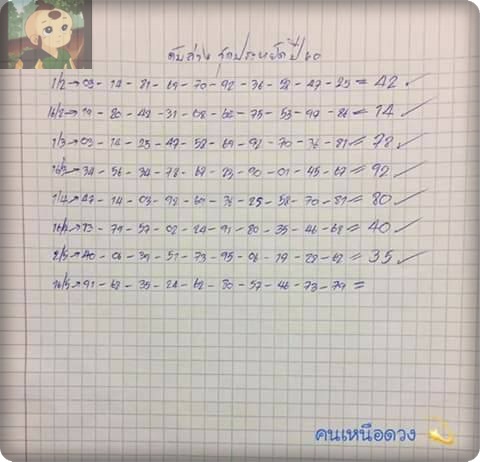 ดับล่าง ชุดประหยัด ปี 60
1/2 → 03 - 14 - 81 - 69 - 70 - 92 - 36 - 58 - 47 - 25 = 42 ✓
16/2 → 19 - 20 - 42 - 31 - 08 - 64 - 75 - 53 - 97 - 86 = 14 ✓
1/3 → 03 - 14 - 25 - 47 - 58 - 69 - 92 - 70 - 36 - 81 = 78 ✓
16/3 → 34 - 56 - 34 - 78 - 67 - 23 - 90 - 01 - 45 - 67 = 92 ✓
1/4 → 47 - 14 - 03 - 92 - 69 - 36 - 25 - 58 - 70 - 81 = 80 ✓
16/4 → 13 - 79 - 57 - 02 - 24 - 91 - 80 - 35 - 46 - 68 = 40 ✓
2/5 → 40 - 06 - 39 - 51 - 73 - 95 - 06 - 19 - 28 - 62 = 35 ✓
16/5 → 91 - 68 - 35 - 24 - 62 - 80 - 57 - 46 - 73 - 79 =
คนเหนือดวง